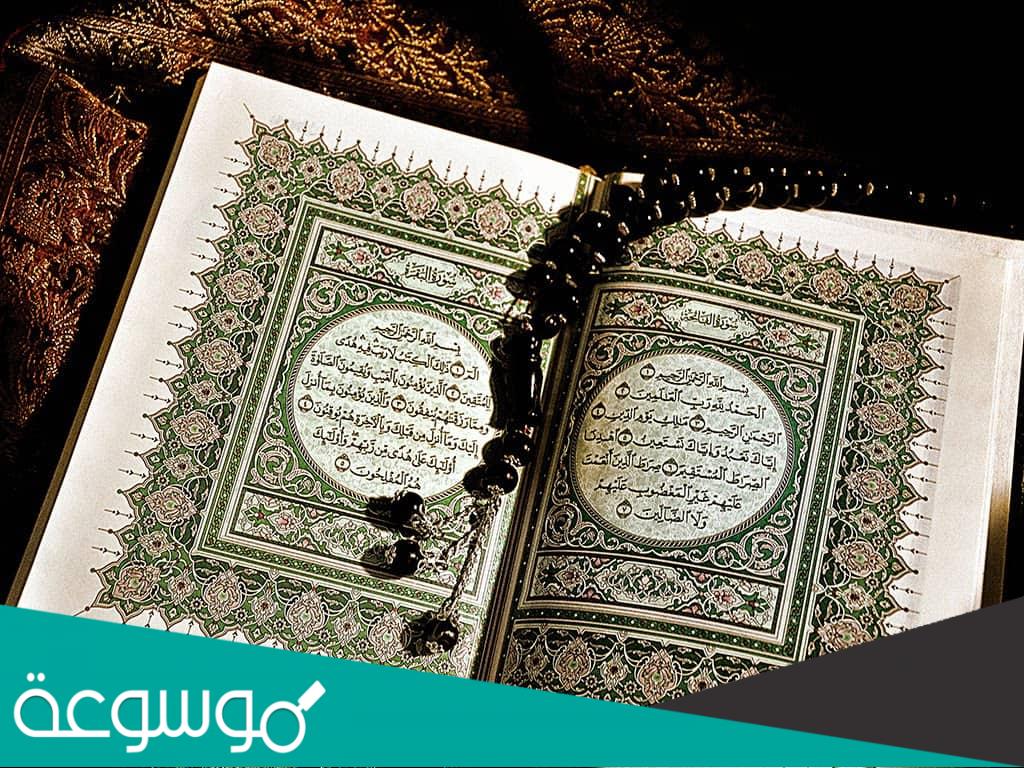 سورة الفاتحة
بسم الله الرحمن الرحيم ۝١
الحمد لله رب العالمين ۝٢
الرحمن الرحيم ۝٣ ملك يوم الدين ۝٤
إياك نعبد وإياك نستعين ۝٥ اهدنا
الصرط المستقيم ۝٦ صرط الذين أنعمت
عليهم غير المغضوب عليهم
ولا الضالين ۝٧
سورة البقرة
بسم الله الرحمن الرحيم
الم ۝١ ذلك الكتب لا ريب فيه هدى
للمتقين ۝٢ الذين يؤمنون بالغيب ويقيمون الصلوة
ومما رزقنهم ينفقون ۝٣ والذين يؤمنون بما أنزل
إليك وما أنزل من قبلك وبالآخرة هم يوقنون ۝٤
أولئك على هدى من ربهم وأولئك
هم المفلحون ۝٥
موسوعة